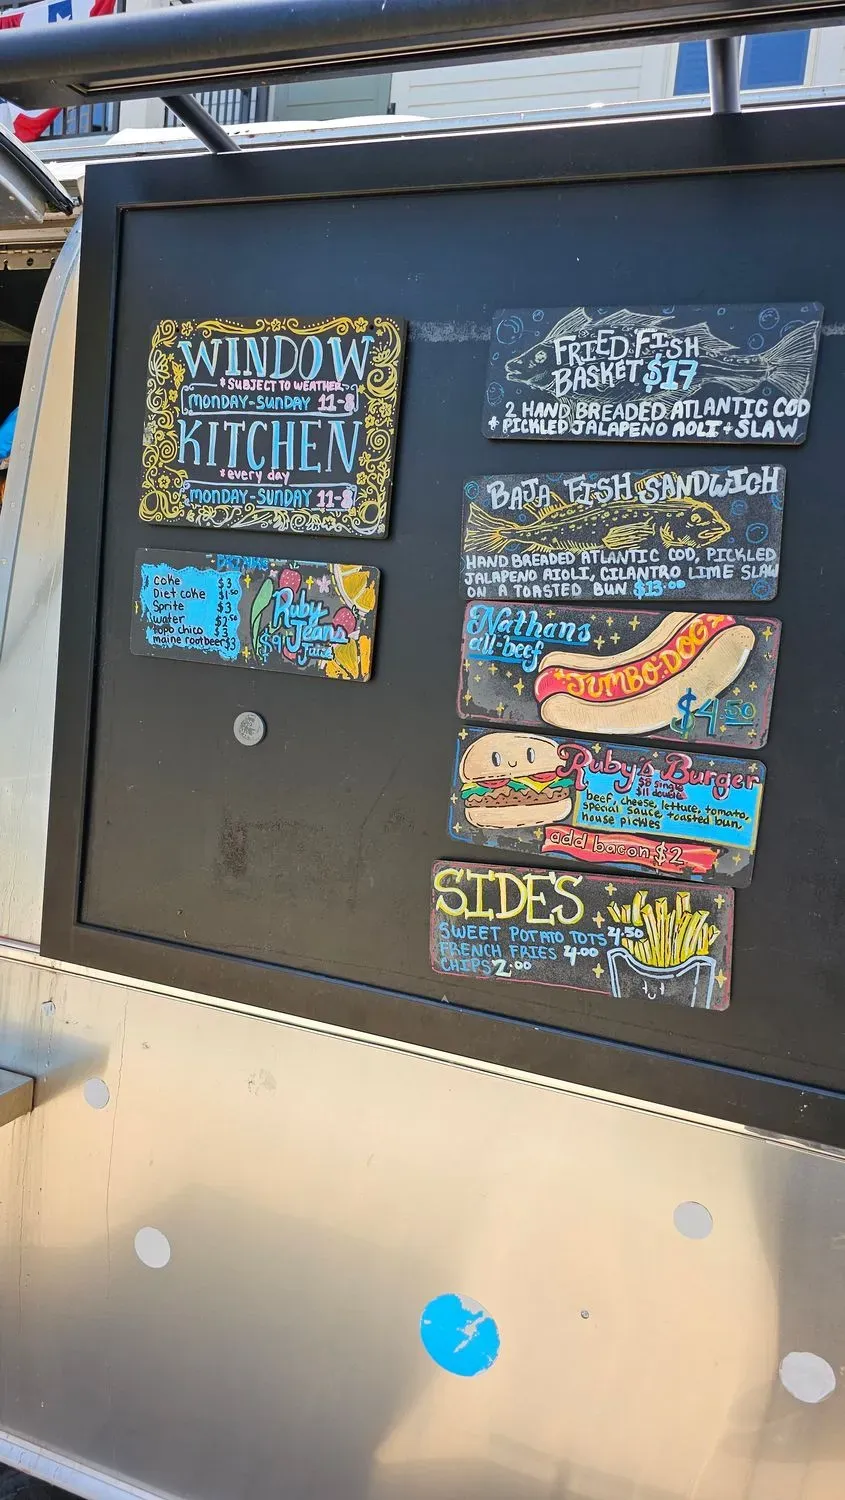 WINDOW
*SUBJECT TO WEATHER
MONDAY-SUNDAY 11-8
KITCHEN
*every day
MONDAY-SUNDAY 11-8
DRINKS
coke $3
Diet coke $1.50
Sprite $3
water $2.50
topo chico $3
maine rootbeer $3
Ruby
Jeans
Juice
$9
FRIED FISH
BASKET $17
2 HAND BREADED ATLANTIC COD
+ PICKLED JALAPENO AOLI + SLAW
BAJA FISH SANDWICH
HAND BREADED ATLANTIC COD, PICKLED
JALAPENO AIOLI, CILANTRO LIME SLAW
ON A TOASTED BUN $13.00
Nathans
all-beef
JUMBO-DOG
$4.50
Ruby's Burger
$8 single
$11 double
beef, cheese, lettuce, tomato,
special sauce, toasted bun,
house pickles
add bacon $2
SIDES
SWEET POTATO TOTS 4.50
FRENCH FRIES 4.00
CHIPS 2.00